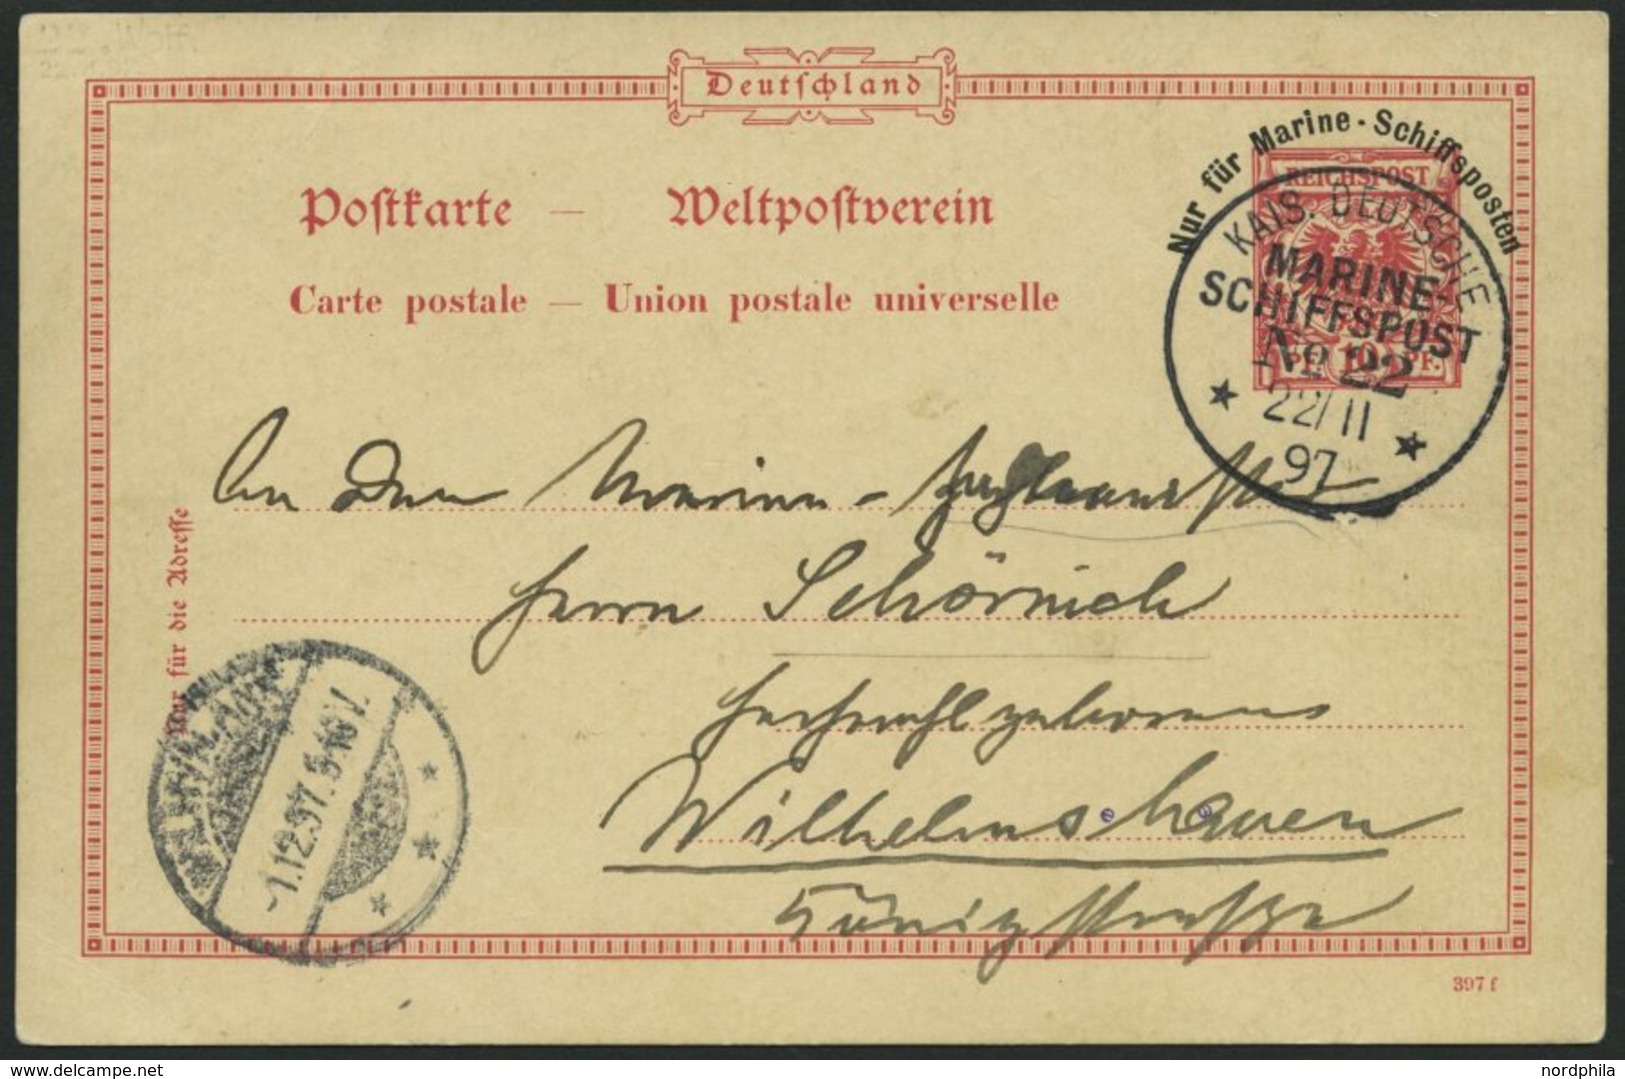 Deutschland
Nur für Marine-Schiffsposten
REICHSPOST
10
PF. PF.
Postkarte — Weltpostverein
Carte postale — Union postale universelle
KAIS. DEUTSCHE
MARINE-
SCHIFFSPOST
No 22
22/11
97
An den Marine-
Herrn Schörnich
Hochwohlgeboren
Wilhelmshaven
Königstraße
Nur für die Adresse
1.12.97. 9-10 V.
397 f
nordphila